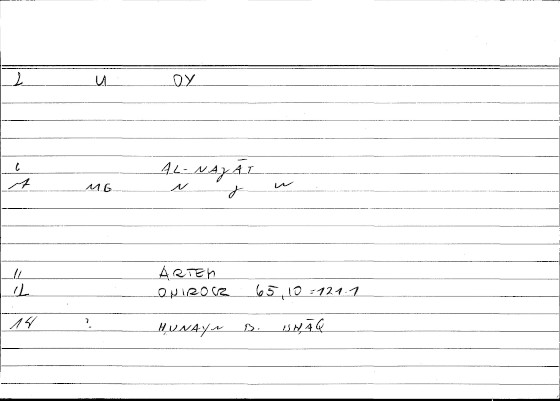 L U OY
6 AL-NAJĀT
A MG N J W
11 ARTEM
12 ONIROCR 65,10 = 121.1
14 ? ḤUNAYN B. ISḤĀQ